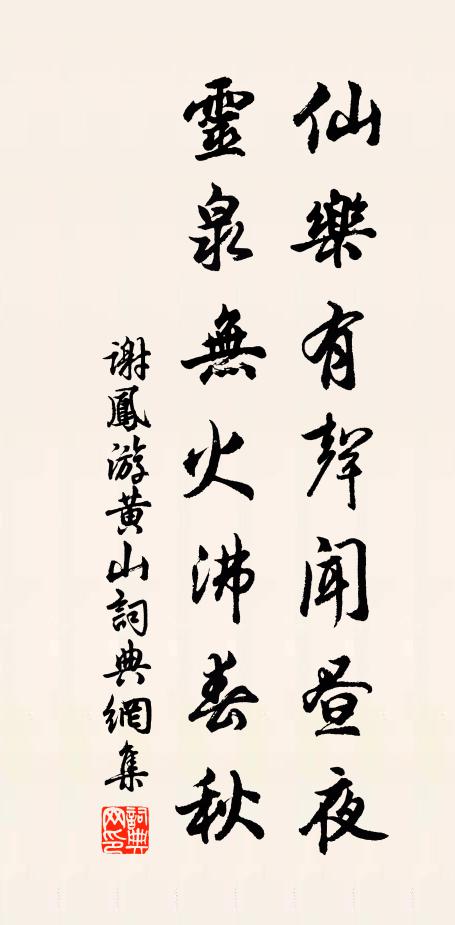 仙樂有聲聞晝夜
靈泉無火沸春秋
謝鳳游黄山詞典網集
詞典網印